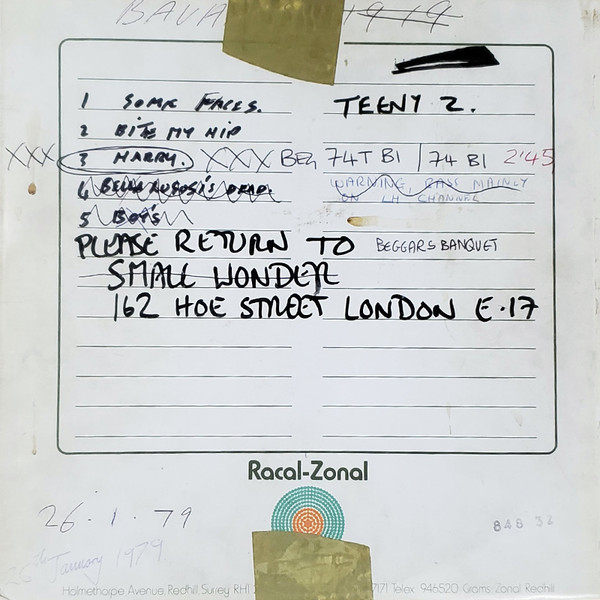 BAUHA 1919
1 SOME FACES. TEENY 2.
2 BITE MY HIP
XXX 3 HARRY. XXX BEG 74T B1 / 74 B1 2'45
4 BELA LUGOSI'S DEAD. WARNING, BASS MAINLY
ON LH CHANNEL
5 BOYS
PLEASE RETURN TO BEGGARS BANQUET
SMALL WONDER
162 HOE STREET LONDON E.17
Racal-Zonal
26.1.79
848 32
26th January 1979.
Holmethorpe Avenue, Redhill, Surrey RH1 7171 Telex: 946520 Grams: Zonal Redhill